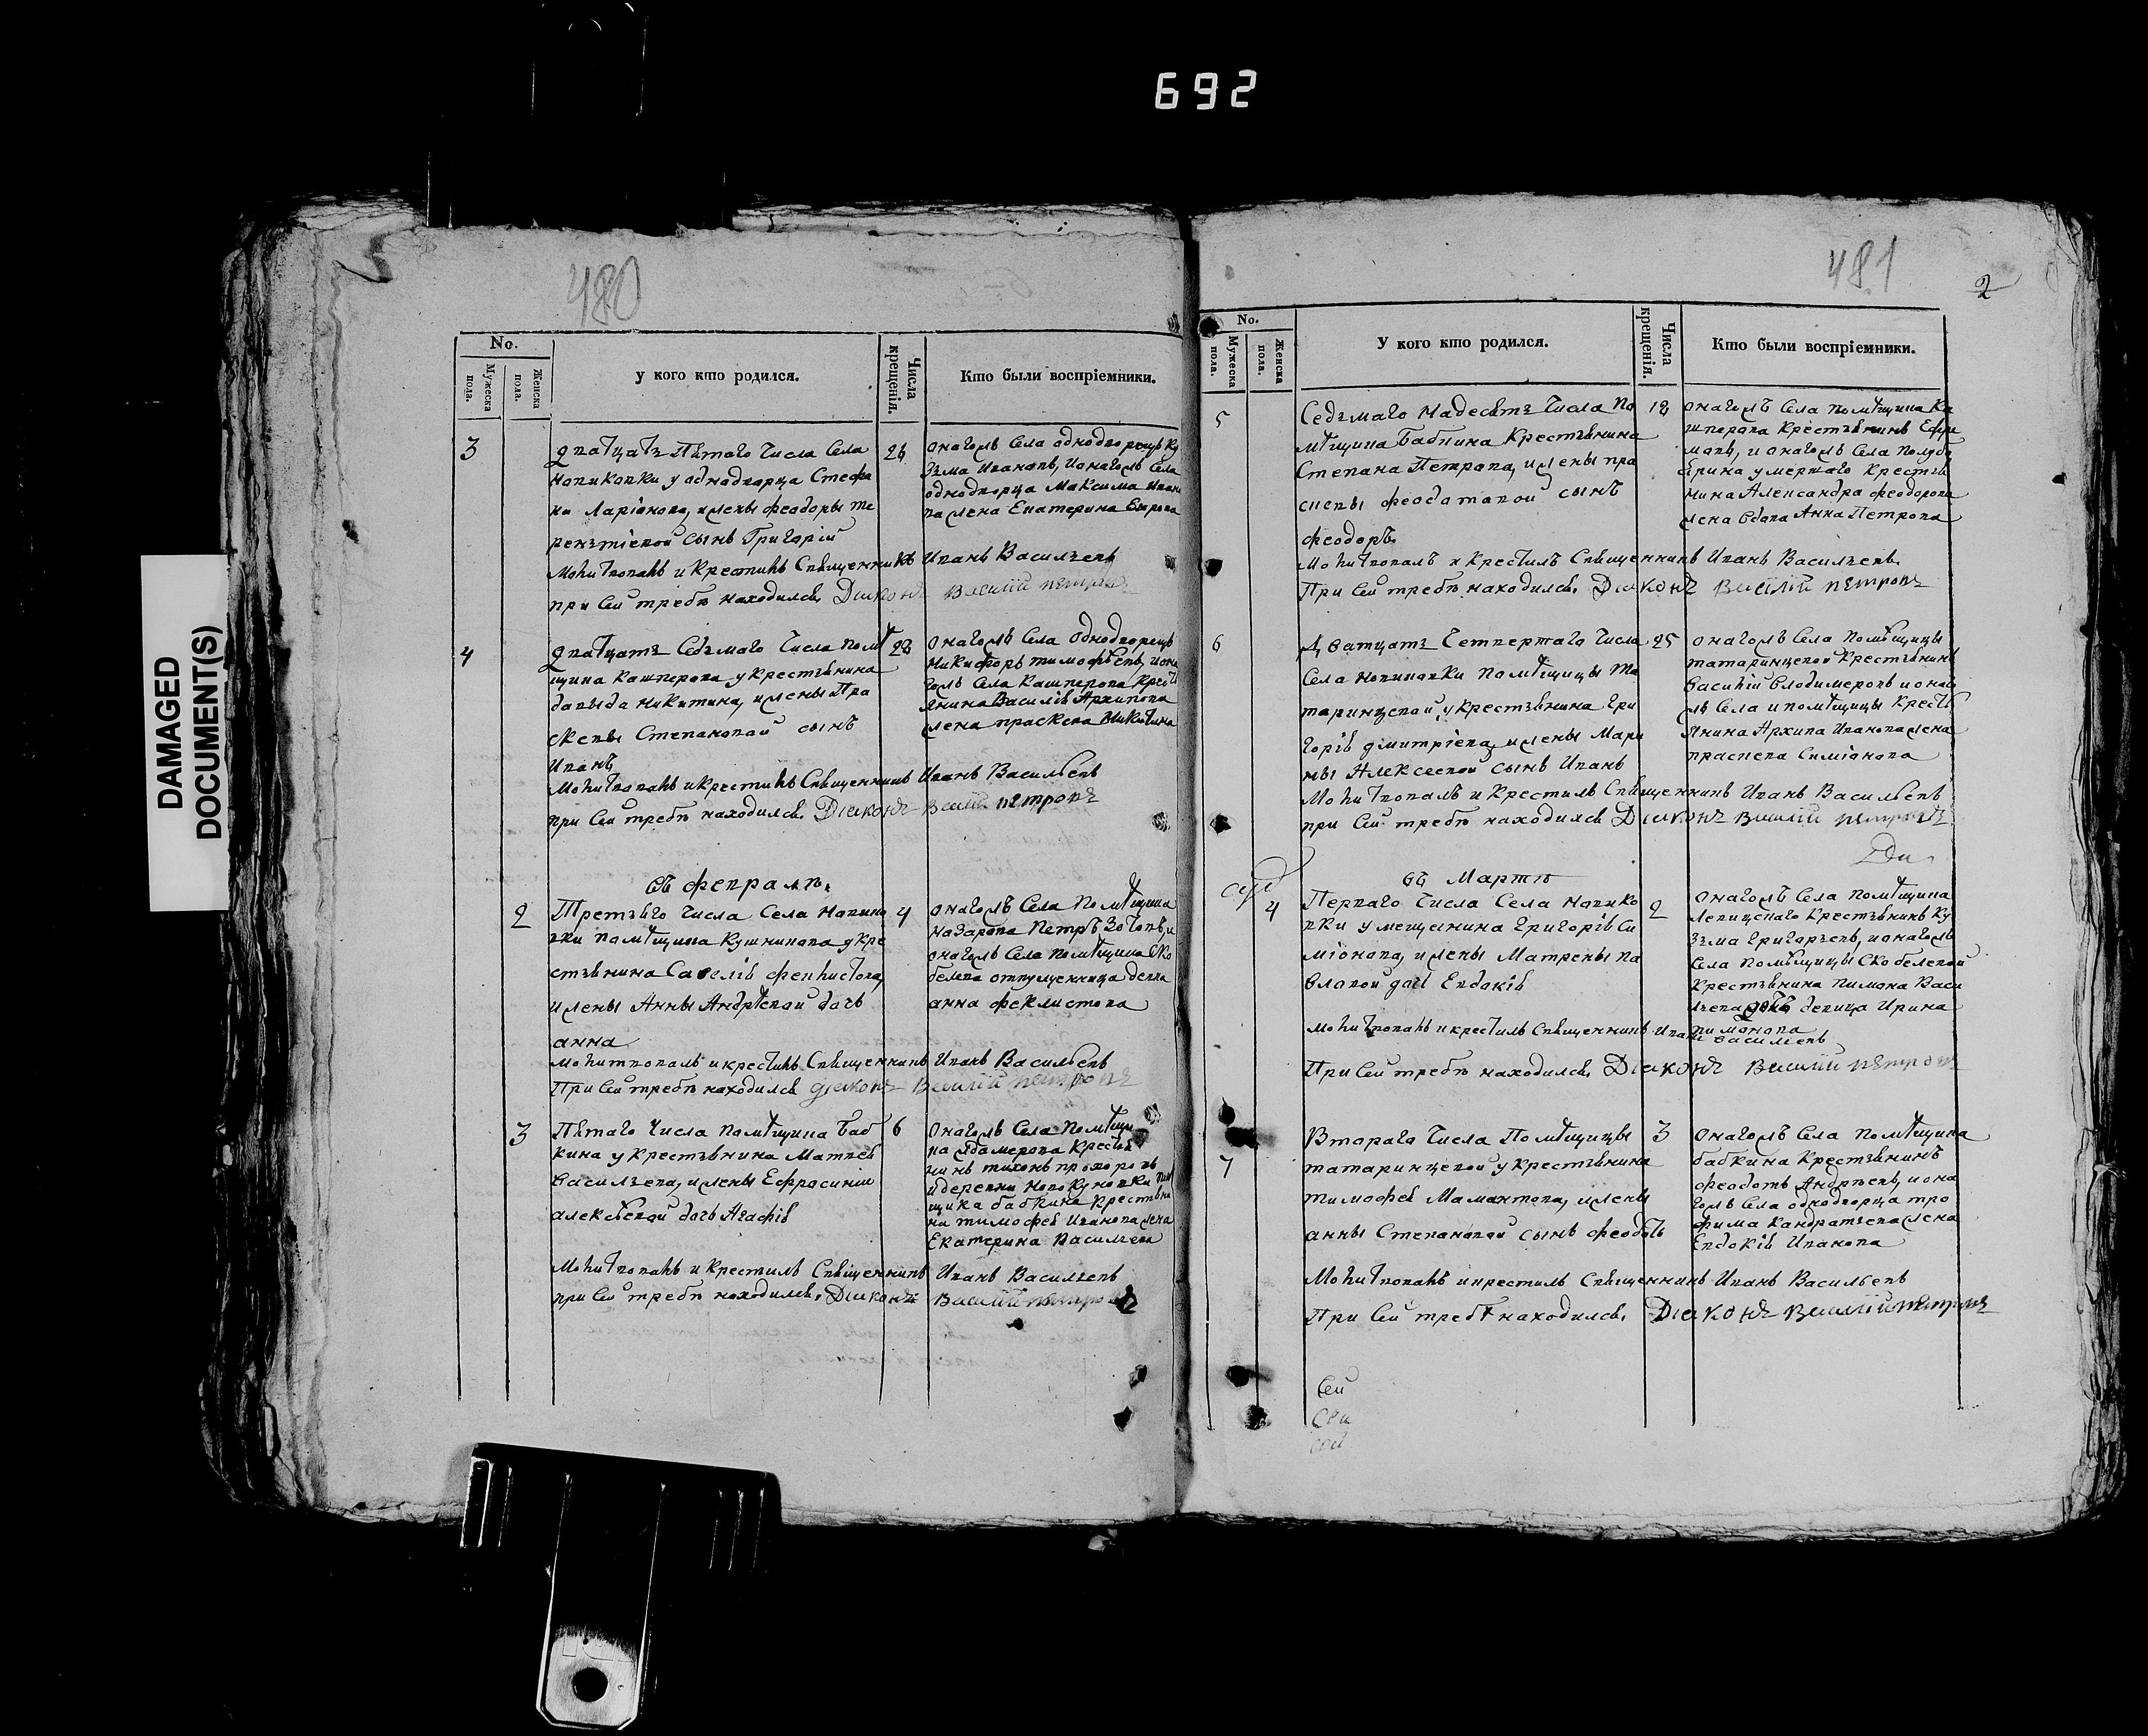 692
DAMAGED
DOCUMENT(S)
480
No.
Мужеска пола.
Женска пола.
У кого кто родился.
Числа крещенія.
Кто были воспріемники.
3
Дватцать Пятаго Числа Села
новиковки у аднадворца Стефа
на Ларіонова, и жены феодоры те
рентіевой сынъ Григорій
26
Онагожъ Села однодворецъ Ку
зма Ивановъ, и онагожъ Села
однодворца Максима Ивано
ва жена Екатерина
Молитвовалъ и Крестилъ Священникъ Иванъ Васильевъ
при Сей требѣ находился Діаконъ Василій Петровъ
4
Дватцать Седьмаго Числа помѣ
щика Кашперова у крестьянина
давыда никитина, и жены Пра
сковьи Степановой сынъ
Иванъ
28
Онагожъ Села Однодворецъ
никифоръ тимофѣевъ, и она
гожъ Села Кашперова крест
янина Василія Архипова
жена праскева Никитина
Молитвовалъ и крестилъ Священникъ Иванъ Васильевъ
при Сей требѣ находился Діаконъ Василій Петровъ
въ февралѣ.
2
Третьяго числа Села новико
вки памѣщика Кушникова у кре
стьянина Савелія феклистова,
и жены Анны Андрѣевой дочь
анна
4
Онагожъ Села Помѣщика
назарова Петръ Зотовъ, и
онагожъ Села помѣщика Ско
белева отпущенница девка
анна феклистова
Молитвовалъ и крестилъ Священникъ Иванъ Васильевъ
При Сей требѣ находился діаконъ Василій Петровъ
3
Пятаго Числа памѣщика Баб
кина у крестьянина Матвея
Васильева, и жены Ефросиніи
алексѣевой дочь Агафія
6
Онагожъ Села Помѣщи
ка Крестья
нинъ тихонъ прохоровъ
и деревни пом
щика бабкина крестьяни
на тимофея Иванова жена
Екатерина Васильева
Молитвовалъ и Крестилъ Священникъ Иванъ Васильевъ
при Сей требѣ находился Діаконъ Василій Петровъ
481
2
No.
Мужеска пола.
Женска пола.
У кого кто родился.
Числа крещенія.
Кто были воспріемники.
5
Седьмаго надесять Числа По
мѣщика Бабкина Крестьянина
Степана Петрова, и жены пра
сковы феодатовой сынъ
феодоръ
18
Онагожъ Села помѣщика Ка
шперова Крестьянинъ Ефи
мовъ, и онагожъ Села
умершаго Крестья
нина Александра феодорова
жена вдова Анна Петрова
Молитвовалъ и крестилъ Священникъ Иванъ Васильевъ
При Сей требѣ находился Діаконъ Василій Петровъ
6
Дватцать Четвертаго Числа
Села новиковки Помѣщицы та
таринцевой у крестьянина Гри
горія дмитріева, и жены Мари
ны Алексеевой сынъ Иванъ
25
Онагожъ Села Помѣщицы
татаринцевой Крестьянинъ
Василій Владимеровъ и онаго
жъ Села и помѣщицы Крест
янина Архипа Иванова жена
праскева Симіонова
Молитвовалъ и Крестилъ Священникъ Иванъ Васильевъ
при Сей требѣ находился Діаконъ Василій Петровъ
въ Мартѣ
4
Перваго Числа Села новико
вки у мещанина Григорія Си
міонова, и жены Матрены Па
вловой дочь Евдокія
2
Онагожъ Села Помѣщика
Крестьянинъ Ку
зьма Григорьевъ, и онагожъ
Села помѣщицы Скобелевой
Крестьянина Пимона Васи
льева дочь девица Ирина
Пимонова
Молитвовалъ и крестилъ Священникъ Иванъ Васильевъ
При Сей требѣ находился Діаконъ Василій Петровъ
7
Втораго Числа Помѣщицы
татаринцевой у крестьянина
тимофея Мамонтова, и жены
анны Степановой сынъ феодотъ
3
Онагожъ Села помѣщика
бабкина Крестьянинъ
феодотъ Андрѣевъ, и она
гожъ Села однодворца тро
фима Кандратьева жена
Евдокія Иванова
Молитвовалъ и крестилъ Священникъ Иванъ Васильевъ
При Сей требѣ находился Діаконъ Василій Петровъ
Сей